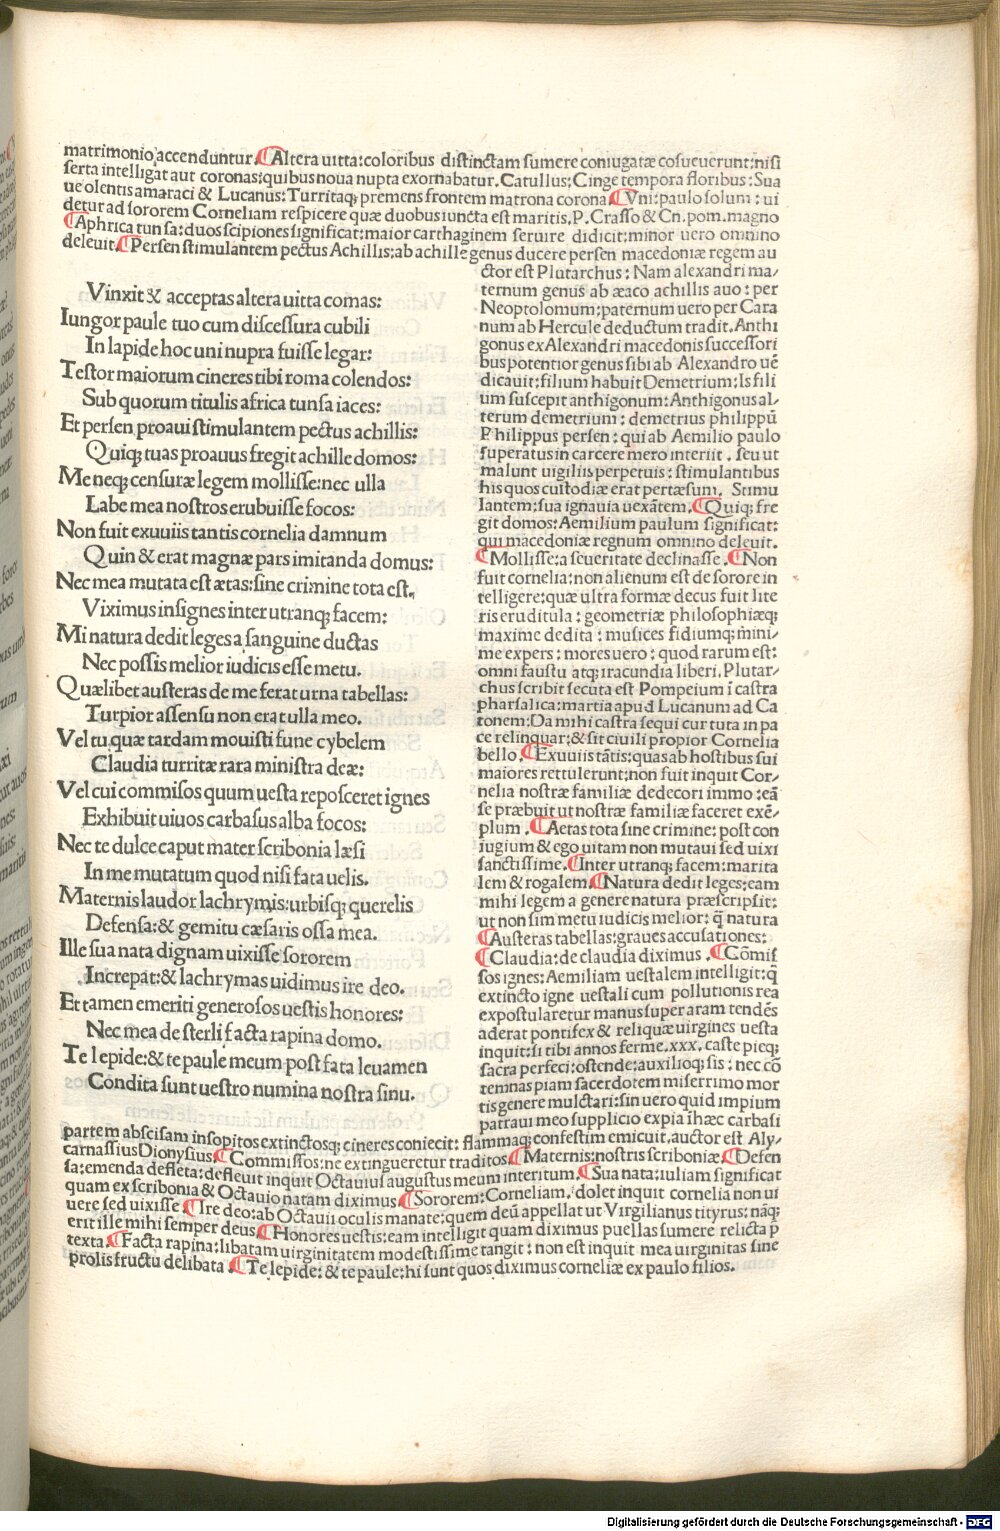 matrimonio accenduntur. ¶ Altera uitta: coloribus distinctam sumere coniugatæ cōsueuerunt: nisi
serta intelligat aut coronas: quibus noua nupta exornabatur. Catullus: Cinge tempora floribus: Sua
ue olentis amaraci & Lucanus: Turritaq; premens frontem matrona corona ¶ Vni: paulo solum: ui
detur ad sororem Corneliam respicere quæ duobus iuncta est maritis. P. Crasso & Cn. pom. magno
¶ Aphrica tunsa: duos scipiones significat: maior carthaginem seruire didicit: minor uero omnino
deleuit. ¶ Persen stimulantem pectus Achillis: ab achille genus ducere persen macedoniæ regem au
ctor est Plutarchus: Nam alexandri ma/
ternum genus ab æaco achillis auo: per
Neoptolomum: paternum uero per Cara
num ab Hercule deductum tradit. Anthi
gonus ex Alexandri macedonis successori
bus potentior genus sibi ab Alexandro uē
dicauit: filium habuit Demetrium: Is fili
um suscepit anthigonum: Anthigonus al/
terum demetrium: demetrius philippū
Philippus persen: qui ab Aemilio paulo
superatus in carcere mero interiit. seu ut
malunt uigiliis perpetuis: stimulantibus
his quos custodiæ erat pertæsum. Stimu
lantem: sua ignauia uexātem. ¶ Quiq; fre
git domos: Aemilium paulum significat:
qui macedoniæ regnum omnino deleuit.
¶ Mollisse: a seueritate declinasse. ¶ Non
fuit cornelia: non alienum est de sorore in
telligere: quæ ultra formæ decus fuit lite
ris eruditula: geometriæ philosophiæq;
maxime dedita: musices fidiumq; mini/
me expers: mores uero: quod rarum est:
omni faustu atq; iracundia liberi. Plutar/
chus scribit secuta est Pompeium ī castra
pharsalica: martia apud Lucanum ad Ca
tonem: Da mihi castra sequi cur tuta in pa
ce relinquar: & sit ciuili propior Cornelia
bello. ¶ Exuuiis tātis: quas ab hostibus sui
maiores rettulerunt: non fuit inquit Cor/
nelia nostræ familiæ dedecori immo: eā
se præbuit ut nostræ familiæ faceret exē/
plum. ¶ Aetas tota sine crimine: post con
iugium & ego uitam non mutaui sed uixi
sanctissime. ¶ Inter utranq; facem: marita
lem & rogalem. ¶ Natura dedit leges: eam
mihi legem a genere natura præscripsit:
ut non sim metu iudicis melior: q̄ natura
¶ Austeras tabellas: graues accusationes:
¶ Claudia: de claudia diximus. ¶ Cōmis
sos ignes: Aemiliam uestalem intelligit: q̄
extincto igne uestali cum pollutionis rea
expostularetur manus super aram tendēs
aderat pontifex & reliquæ uirgines uesta
inquit: si tibi annos ferme .xxx. caste pieq;
sacra perfeci: ostende: auxilioq; sis: nec cō
temnas piam sacerdotem miserrimo mor
tis genere mulctari: sin uero quid impium
patraui meo supplicio expia īhæc carbasi
Vinxit & acceptas altera uitta comas:
Iungor paule tuo cum discessura cubili
In lapide hoc uni nupra fuisse legar:
Testor maiorum cineres tibi roma colendos:
Sub quorum titulis africa tunsa iaces:
Et persen proaui stimulantem pectus achillis:
Quiq; tuas proauus fregit achille domos:
Me neq; censuræ legem mollisse: nec ulla
Labe mea nostros erubuisse focos:
Non fuit exuuiis tantis cornelia damnum
Quin & erat magnæ pars imitanda domus:
Nec mea mutata est ætas: sine crimine tota est.
Viximus insignes inter utranq; facem:
Mi natura dedit leges a sanguine ductas
Nec possis melior iudicis esse metu.
Quælibet austeras de me ferat urna tabellas:
Turpior assensu non erat ulla meo.
Vel tu, quæ tardam mouisti fune cybelem
Claudia turritæ rara ministra deæ:
Vel cui commisos quum uesta reposceret ignes
Exhibuit uiuos carbasus alba focos:
Nec te dulce caput mater scribonia læsi
In me mutatum quod nisi fata uelis.
Maternis laudor lachrymis: urbisq; querelis
Defensa: & gemitu cæsaris ossa mea.
Ille sua nata dignam uixisse sororem
Increpat: & lachrymas uidimus ire deo.
Et tamen emeriti generosos uestis honores:
Nec mea de sterli facta rapina domo.
Te lepide: & te paule meum post fata leuamen
Condita sunt uestro numina nostra sinu.
partem abscisam insopitos extinctosq; cineres coniecit: flammaq; confestim emicuit. auctor est Aly/
carnassius Dionysius. ¶ Commissos: ne extingueretur traditos ¶ Maternis: nostris scriboniæ. ¶ Defen
sa: emenda defleta: defleuit inquit Octauius augustus meum interitum. ¶ Sua nata: iuliam significat
quam ex scribonia & Octauio natam diximus ¶ Sororem: Corneliam, dolet inquit cornelia non ui
uere sed uixisse ¶ Ire deo: ab Octauii oculis manate: quem deū appellat ut Virgilianus tityrus: nāq;
erit ille mihi semper deus ¶ Honores uestis: eam intelligit quam diximus puellas sumere relicta p
texta. ¶ Facta rapina: libatam uirginitatem modestissime tangit: non est inquit mea uirginitas sine
prolis fructu delibata ¶ Te lepide: & te paule: hi sunt quos diximus corneliæ ex paulo filios.
Digitalisierung gefördert durch die Deutsche Forschungsgemeinschaft - DFG